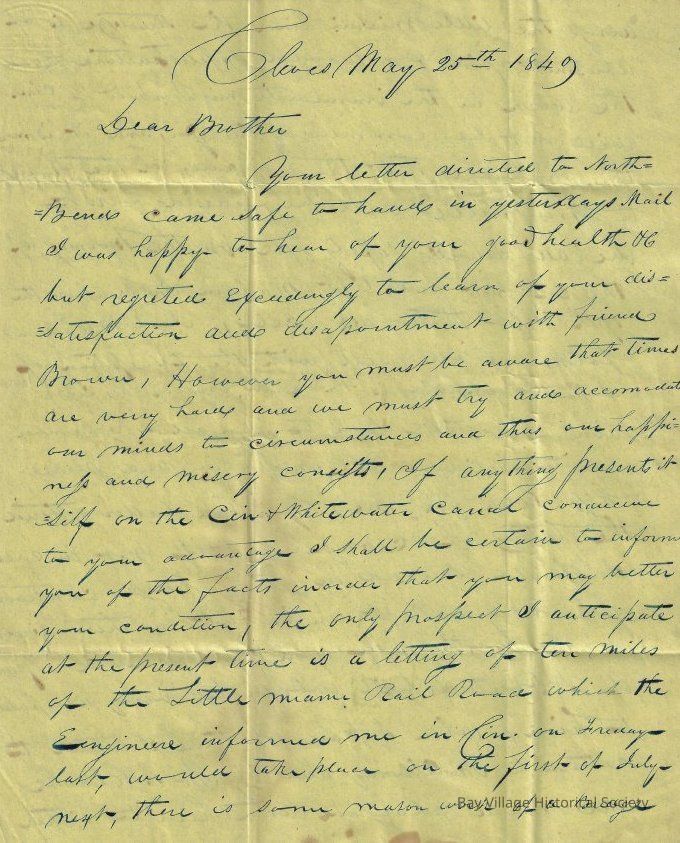 Cleves May 25th 1840
Dear Brother
Your letter directed to North=
=Bend came safe to hand in yesterdays Mail
I was happy to hear of your good health &C
but regreted exceedingly to learn of your dis=
=satisfaction and disapointment with friend
Brown, However you must be aware that times
are very hard and we must try and accomodate
our minds to circumstances and thus our happi=
ness and misery consists, If anything presents it
=self on the Cin & Whitewater Canal conducive
to your advantage I shall be certain to inform
you of the facts inorder that you may better
your condition, the only prospect I anticipate
at the present time is a letting of ten miles
of the Little miami Rail Road which the
Engineere informed me in Cin. on Friday
last, would take place on the first of July
next, there is some mason work of a large
Bay Village Historical Society